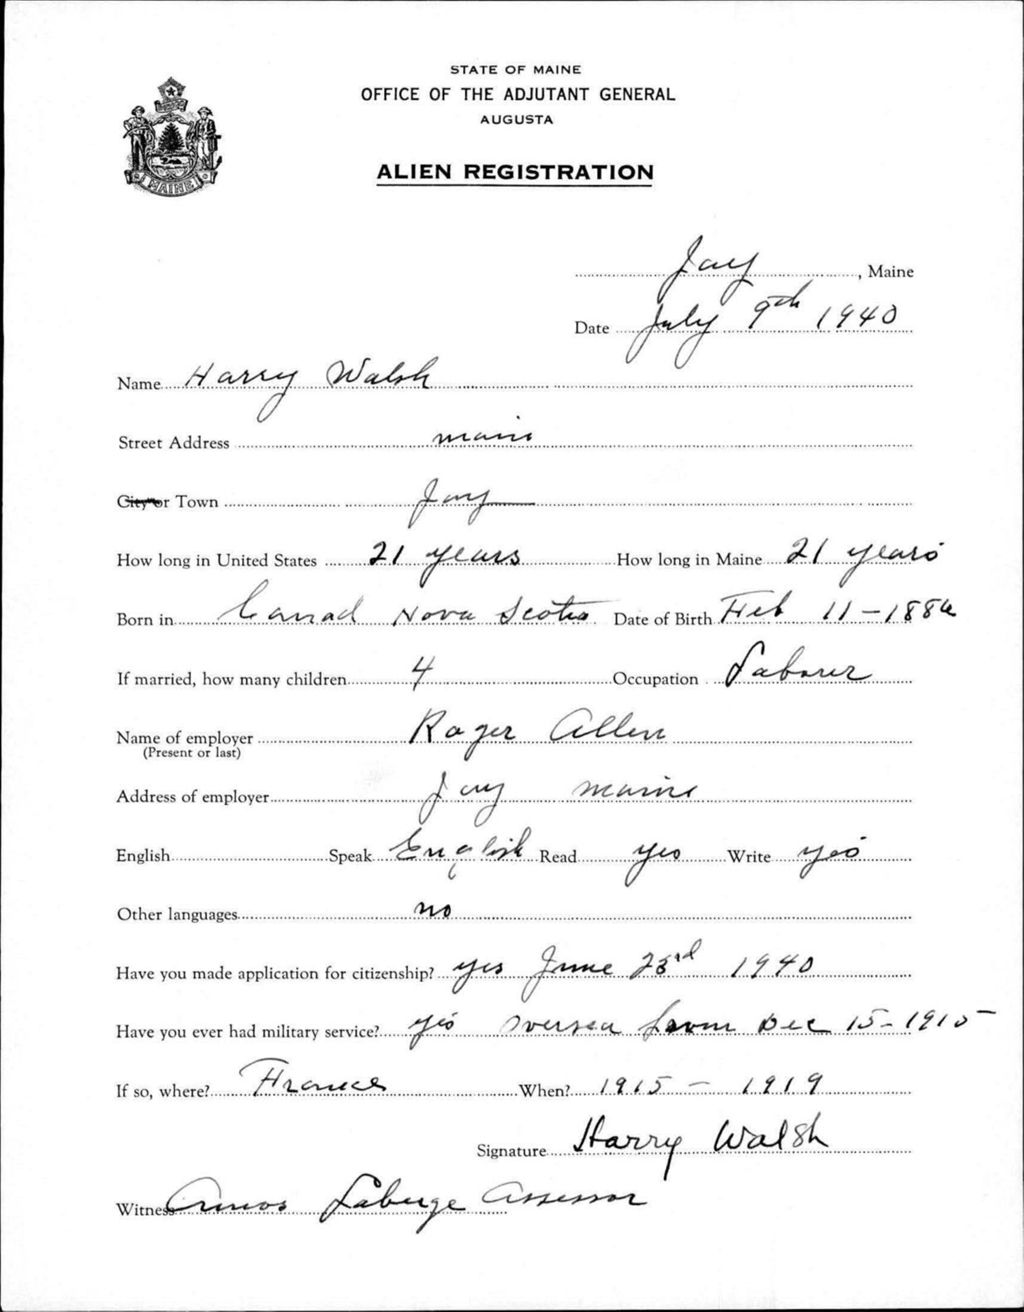 STATE OF MAINE
OFFICE OF THE ADJUTANT GENERAL
AUGUSTA
MAINE
ALIEN REGISTRATION
Jay, Maine
Date July 9th 1940
Name Harry Walsh
Street Address main
City or Town Jay
How long in United States 21 years How long in Maine 21 years
Born in Conrad Nova Scotia Date of Birth Feb 11-1886
If married, how many children 4 Occupation Laborer
Name of employer Roger Allen
(Present or last)
Address of employer Jay maine
English Speak English Read yes Write yes
Other languages no
Have you made application for citizenship? yes June 23rd 1940
Have you ever had military service? yes oversea from Dec 15-1915
If so, where? France When? 1915 - 1919
Signature Harry Walsh
Witness Amos Laberge Assessor